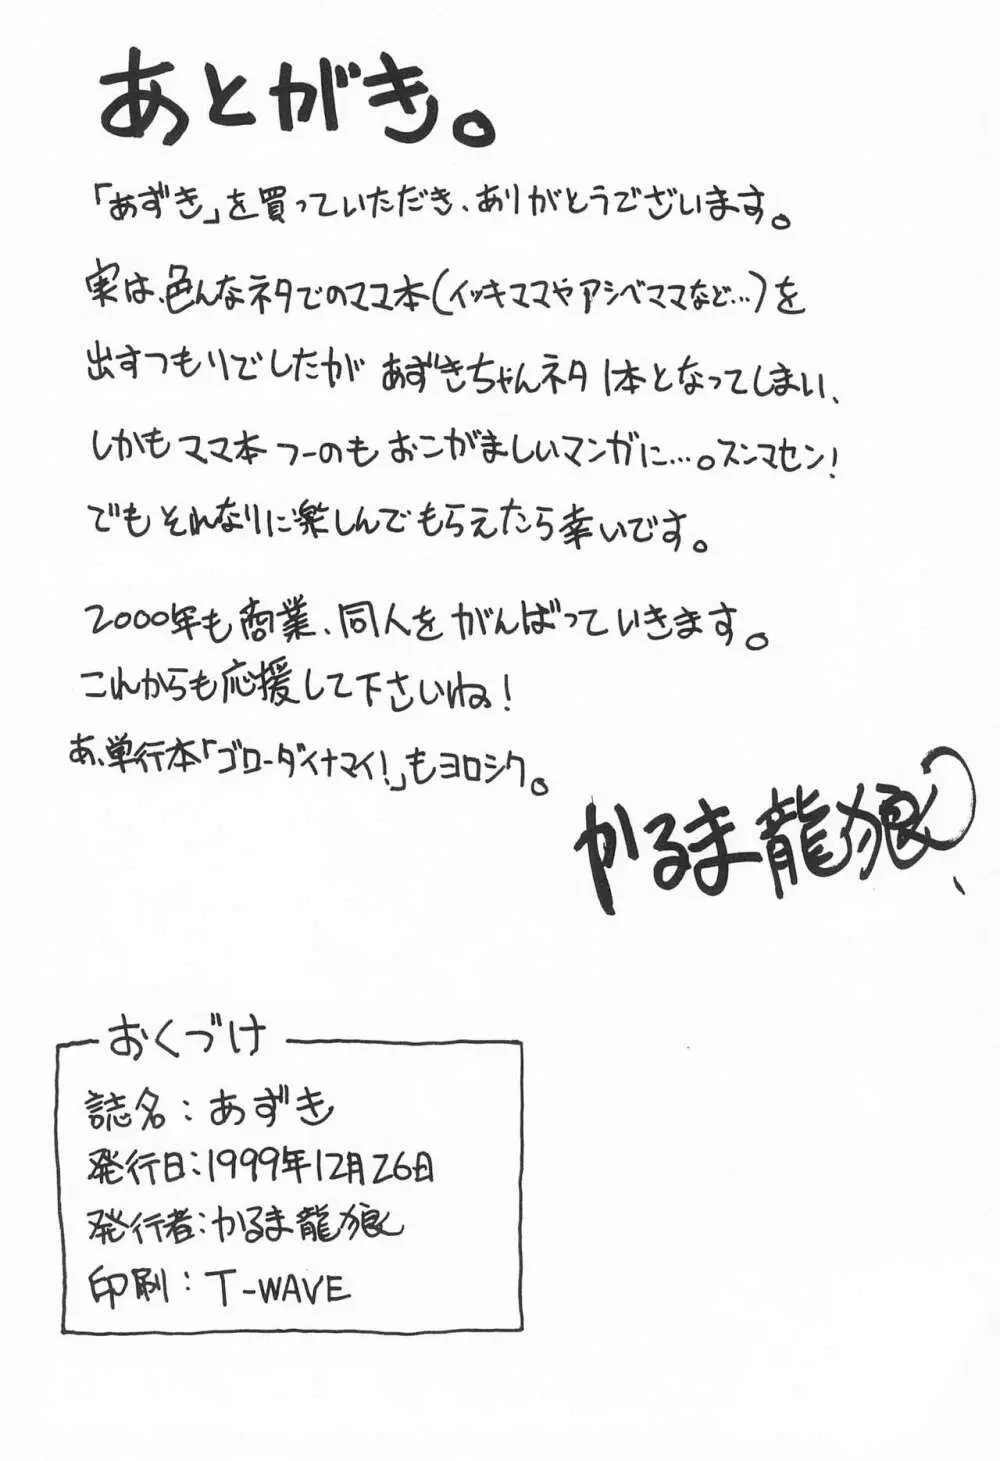 あとがき。
「あずき」を買っていただき、ありがとうございます。
実は、色んなネタでのママ本(イッキママやアシベママなど…)を
出すつもりでしたが あずきちゃんネタ1本となってしまい、
しかも ママ本 つーのも おこがましいマンガに…。スンマセン!
でも それなりに楽しんでもらえたら幸いです。
2000年も商業、同人をがんばっていきます。
これからも応援して下さいね!
あ、単行本「ゴローダイナマイ!」もヨロシク。
かるま龍狼
おくづけ
誌名:あずき
発行日:1999年12月26日
発行者:かるま龍狼
印刷:T-WAVE